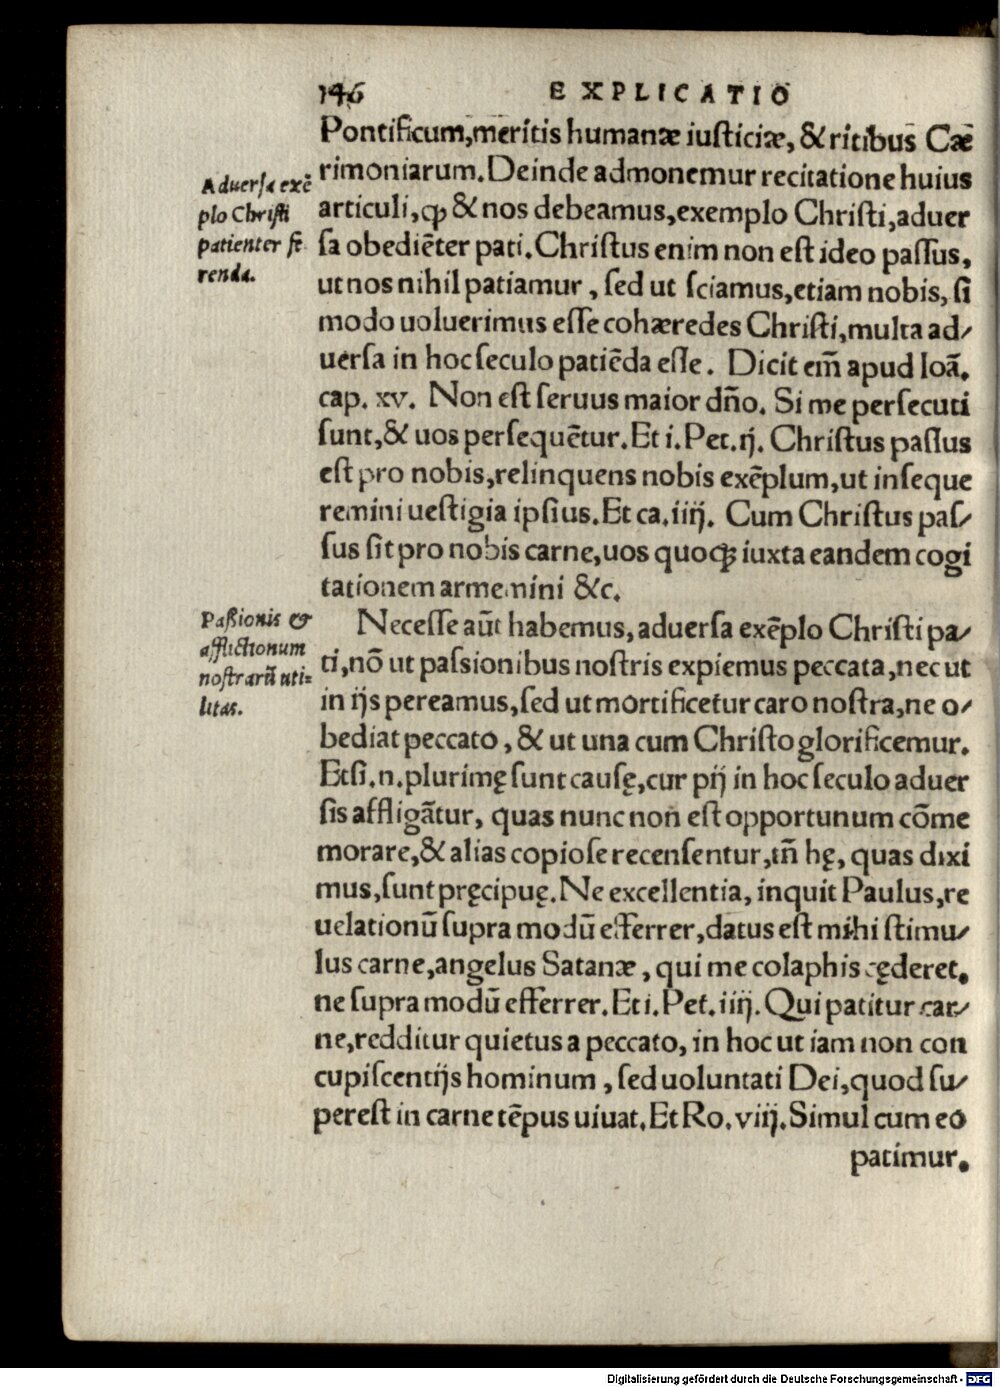 146 EXPLICATIO
Pontificum, meritis humanæ iusticiæ, & ritibus Cæ
rimoniarum. Deinde admonemur recitatione huius
articuli, ꝙ & nos debeamus, exemplo Christi, aduer
sa obediēter pati. Christus enim non est ideo passus,
ut nos nihil patiamur, sed ut sciamus, etiam nobis, si
modo uoluerimus esse cohæredes Christi, multa ad/
uersa in hoc seculo patiēda esse. Dicit em̃ apud Ioã.
cap. xv. Non est seruus maior dño. Si me persecuti
sunt, & uos persequētur. Et i. Pet. ij. Christus passus
est pro nobis, relinquens nobis exēplum, ut inseque
remini uestigia ipsius. Et ca. iiij. Cum Christus pas/
sus sit pro nobis carne, uos quoqꝫ iuxta eandem cogi
tationem armemini &c.
Necesse aūt habemus, aduersa exēplo Christi pa/
ti, nō ut passionibus nostris expiemus peccata, nec ut
in ijs pereamus, sed ut mortificetur caro nostra, ne o/
bediat peccato, & ut una cum Christo glorificemur.
Etsi.n. plurimę sunt causę, cur pij in hoc seculo aduer
sis affligātur, quas nunc non est opportunum cōme
morare, & alias copiose recensentur, tñ hę, quas dixi
mus, sunt pręcipuę. Ne excellentia, inquit Paulus, re
uelationū supra modū efferrer, datus est mihi stimu/
lus carne, angelus Satanæ, qui me colaphis cęderet,
ne supra modū efferrer. Et i. Pet. iiij. Qui patitur car/
ne, redditur quietus a peccato, in hoc ut iam non con
cupiscentijs hominum, sed uoluntati Dei, quod su/
perest in carne tēpus uiuat. Et Ro. viij. Simul cum eo
patimur.
Aduersa exē
plo Christi
patienter fe
renda.
Passionis &
afflictionum
nostrarū uti=
litas.
Digitalisierung gefördert durch die Deutsche Forschungsgemeinschaft - DFG